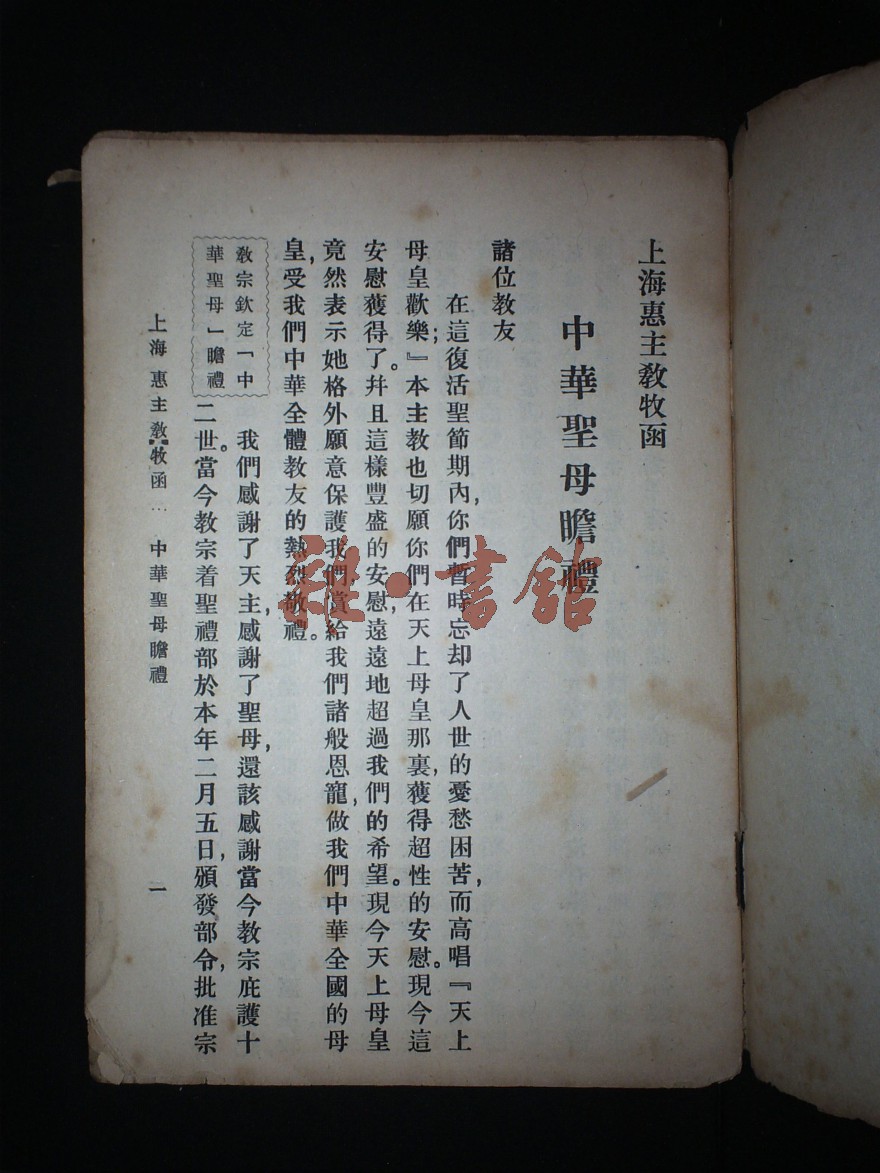 上海惠主教牧函
中華聖母瞻禮
諸位教友
在這復活聖節期內,你們暫時忘却了人世的憂愁困苦,而高唱『天上
母皇歡樂;』本主教也切願你們在天上母皇那裏,獲得超性的安慰。現今這
安慰獲得了。幷且這樣豐盛的安慰,遠遠地超過我們的希望。現今天上母皇
竟然表示她格外願意保護我們,賞給我們諸般恩寵,做我們中華全國的母
皇,受我們中華全體教友的熱烈敬禮。
教宗欽定「中
華聖母」瞻禮
我們感謝了天主,感謝了聖母,還該感謝當今教宗庇護十
二世。當今教宗着聖禮部於本年二月五日,頒發部令,批准宗
上海惠主教牧函… 中華聖母瞻禮
一
雜·書館